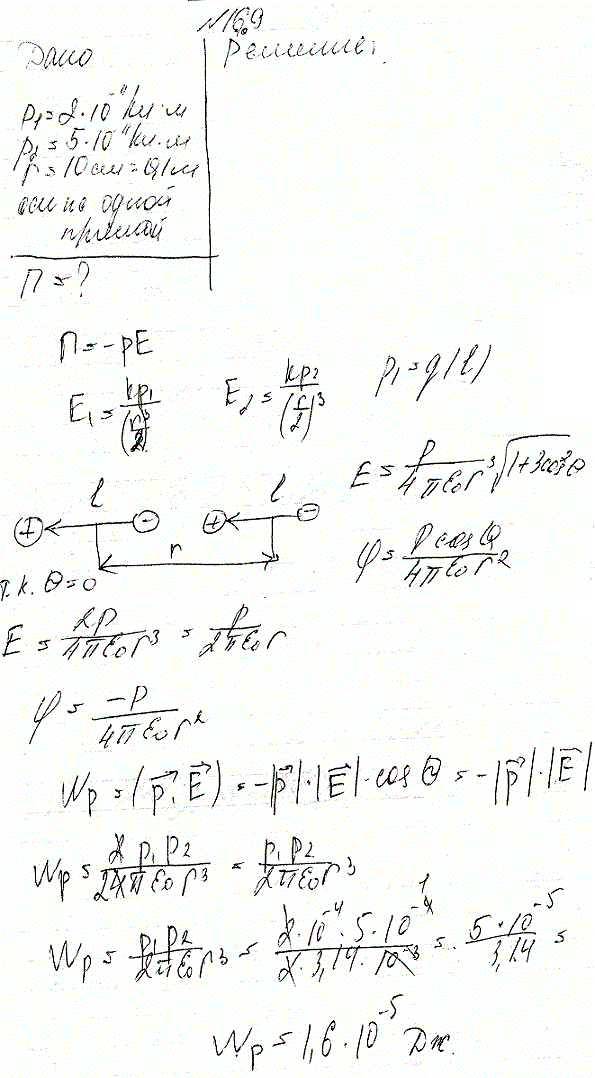 № 16.9
Дано
Решение.
p₁ = 2·10⁻¹¹ Кл·м
p₂ = 5·10⁻¹¹ Кл·м
r = 10 см = 0,1 м
оси на одной
прямой
П = ?
П = -pE
E₁ = kp₁/(r/2)³
E₂ = kp₂/(r/2)³
p₁ = q(l)
l l
+ - + -
r
E = p/(4πε₀r³) √(1+3cos²θ)
φ = p cos θ/(4πε₀r²)
т.к. θ = 0
E = 2p/(4πε₀r³) = p/(2πε₀r
φ = -p/(4πε₀r²)
Wp = (p⃗, E⃗) = -|p⃗|·|E⃗|·cos θ = -|p⃗|·|E⃗|
Wp = 2 p₁ p₂/(2 4πε₀r³) = p₁p₂/(2πε₀r³)
Wp = p₁p₂/(2πε₀r³) = 2·10⁻⁴·5·10⁻⁴/(2·3,14·10⁻³) = 5·10⁻⁵/3,14 =
Wp = 1,6·10⁻⁵ Дж.